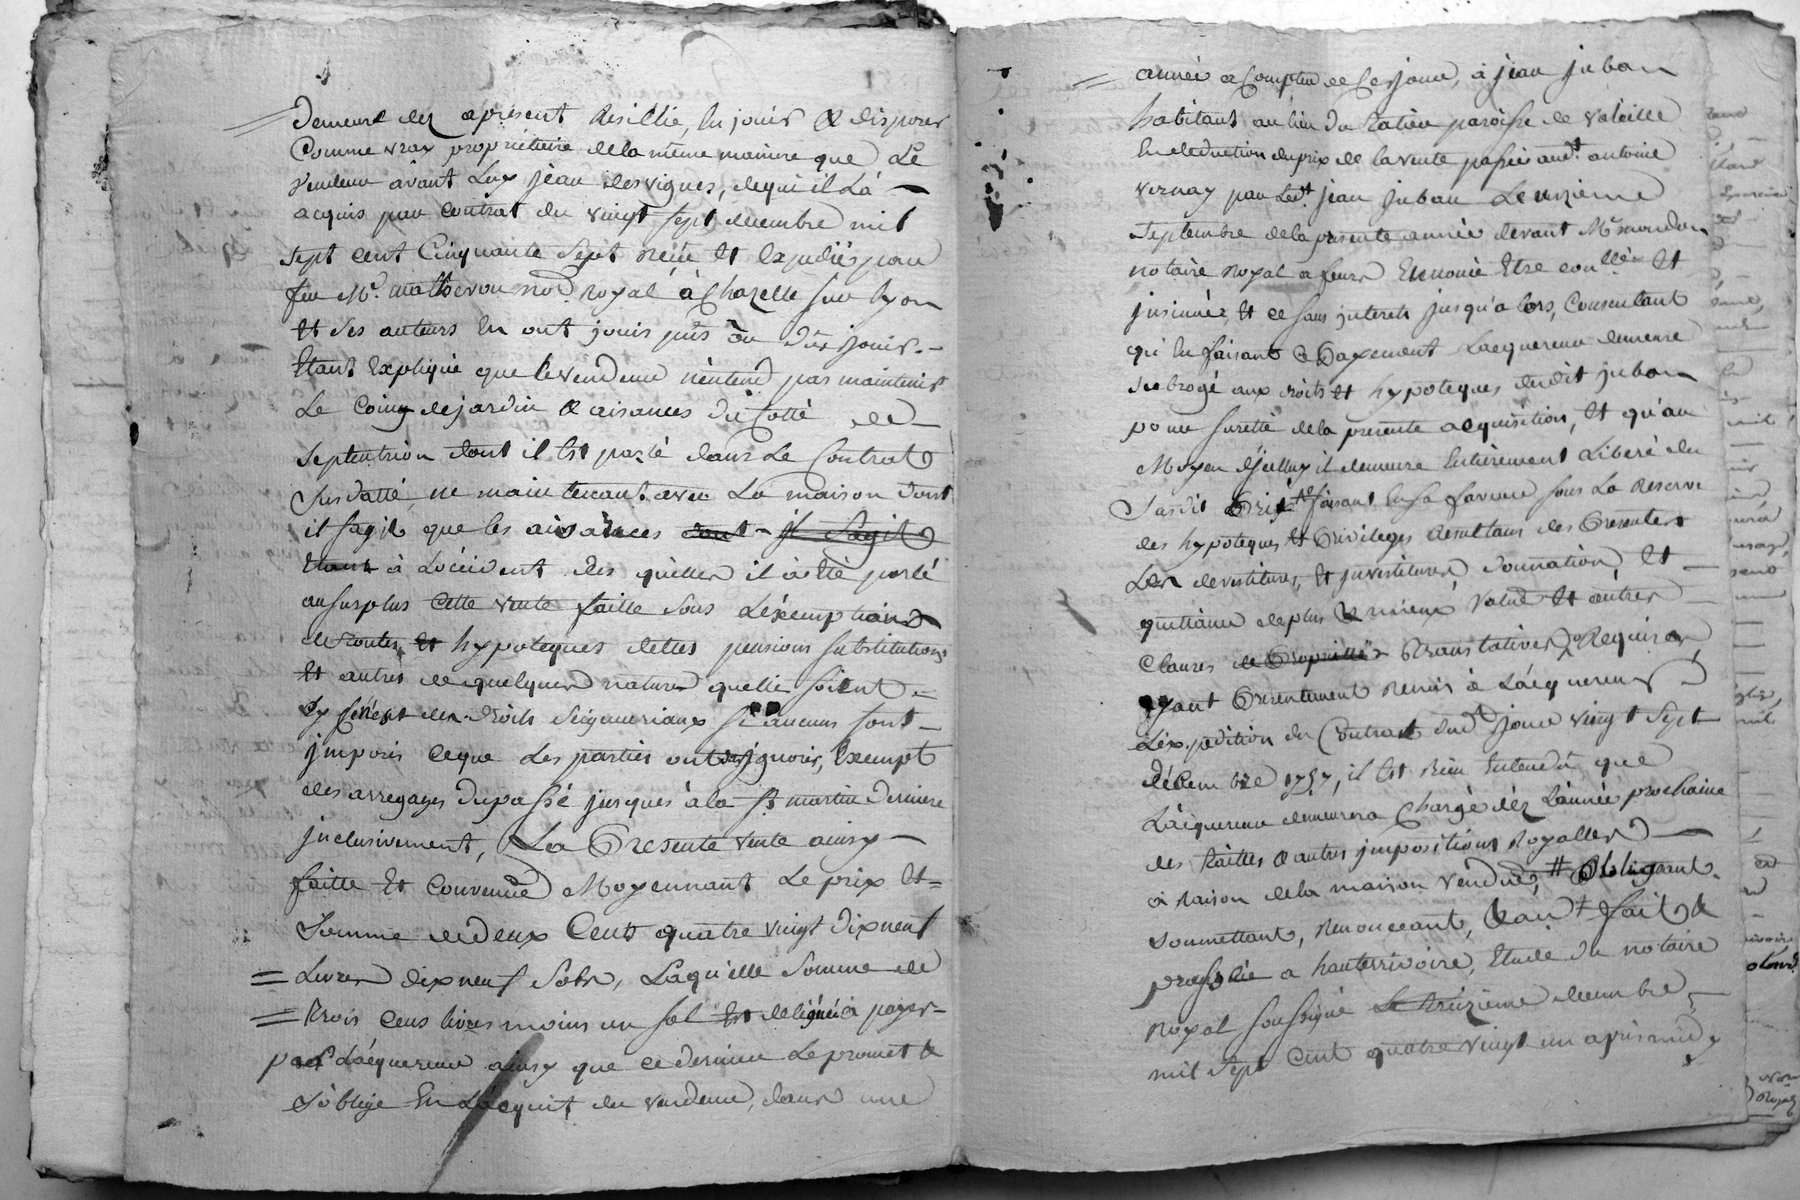 Demeure dez apresent Resillie, En jouir & disposer
Comme vray propriétaire dela même maniere que Le
vendeur avant Luy jean desvignes, dequi il L'a
acquis par contrat du vingt sept decembre mil
sept cent Cinquante Sept reçu Et Expedié par
feu Mr. mathevon nore. Royal à Chazelle sur Lyon
Et Ses auteurs En ont jouis pûs ou dûs jouir.
Etant Expliqué que le vendeur n'entend pas maintenir
Le Coing dejardin & aisances du Cotté de
Septentrion dont il Est parlé dans Le Contrat
Susdatté, ne maintenant avec La maison dont
il sagit que les aisances dont il Sagit
Etant à L'occident des quelles il a Eté parlé
au surplus cette vente faitte Sous L'exemption
de toutes Et hypoteques dettes pensions substitutions
Et autres de quelques natures quelles soient
Sy ce n'est des droits Seigneuriaux si aucuns sont
imposés ceque Les parties ont dit ignorer, Exempt
des arregages du passé jusques à la St martin derniere
inclusivement, La Presente vente ainsy
faitte Et Convenue Moyennant Le prix Et
Somme de deux Cents quatre vingt dix neuf
Livres dix neuf Sols, Laquelle Somme de
trois cens livres moins un sol Est deleguée à payer
par L'acquereur ainsy que ce dernier Le promet &
S'oblige En L'acquit du vendeur, dans une
année a Compter de Cejour, à jean juban
habitant au lieu du Ratieu paroisse de valeille
En deduction du prix de la vente passée audt. antoine
vernay par Ledt. jean juban Le onzieme
Septembre dela presente année devant Me mondon
notaire Royal a feurs Enoncée Etre conllée. Et
insinuée, Et ce sans interets jusqu'a lors, Consentant
qu'En faisant ce Payement Lacquereur demeure
Subrogé aux droits Et hypoteques dudit juban
pour sureté dela presente acquisition, Et qu'au
Moyen d'jcelluy il demeure Entierement Liberé du
Susdit Prix faisant En sa faveur sous La Reserve
des hypoteques Et Privileges Resultans des Presentes
Les devestitures, Et investitures, donnation, Et
quittance de plus & mieux value Et autres
Clauses de Propriété translatives Requises,
ayant Presentement Remis à L'acquereur
L'expedition du Contrat dudt jour vingt Sept
décembre 1757, il Est Bien Entendu que
L'acquereur demeurera Chargé dèz L'année prochaine
des tailles & autres impositions Royalles
à Raison de la maison vendue, # Obligeant.
Soumettant, Renonceant, &a Fait &
passé a hauterivoire, Etude du notaire
Royal Soussigné Le treizieme decembre
mil Sept Cent quatre vingt un apres midy